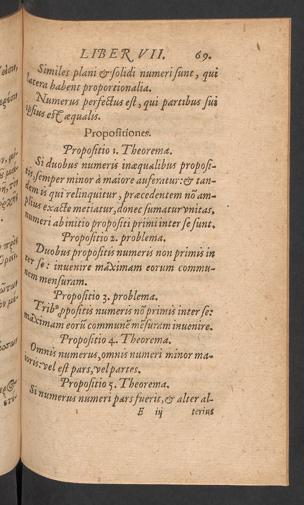 LIBER VII. 69.
Similes plani & solidi numeri sunt, qui
latera habent proportionalia.
Numerus perfectus est, qui partibus sui
ipsius est æqualis.
Propositiones.
Propositio 1. Theorema.
Si duobus numeris inæqualibus proposi-
tis, semper minor à maiore auferatur: & tan-
dem is qui relinquitur, præcedentem nõ am-
plius exacte metiatur, donec sumatur vnitas,
numeri ab initio propositi primi inter se sunt.
Propositio 2. problema.
Duobus propositis numeris non primis in
ter se: inuenire máximam eorum commu-
nem mensuram.
Propositio 3. problema.
Tribꝰ ꝓpositis numeris nõ primis inter se:
máximam eorũ communẽ mẽsuram inuenire.
Propositio 4. Theorema.
Omnis numerus, omnis numeri minor ma-
ioris: vel est pars, vel partes.
Propositio 5. Theorema.
Si numerus numeri pars fuerit, & alter al-
E iij terius